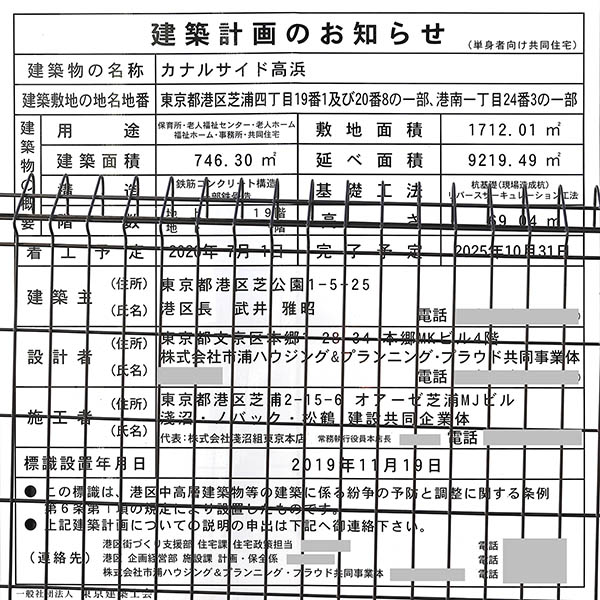 建築計画のお知らせ
(単身者向け共同住宅)
建築物の名称 カナルサイド高浜
建築敷地の地名地番 東京都港区芝浦四丁目19番1及び20番8の一部、港南一丁目24番3の一部
建築物の概要
用途 保育所・老人福祉センター・老人ホーム 福祉ホーム・事務所・共同住宅 敷地面積 1712.01㎡
建築面積 746.30㎡ 延べ面積 9219.49㎡
構造 鉄筋コンクリート構造 一部鉄骨造 基礎工法 杭基礎(現場造成杭) リバースサーキュレーション工法
階数 地上 19階 地 階 高さ 69.04m
着工予定 2020年7月1日 完了予定 2025年10月31日
建築主 (住所) 東京都港区芝公園1-5-25
(氏名) 港区長 武井 雅昭 電話
設計者 (住所) 東京都文京区本郷1-28-34 本郷MKビル4階
(氏名) 株式会社市浦ハウジング&プランニング・プラウド共同事業体
電話
施工者 (住所) 東京都港区芝浦2-15-6 オアーゼ芝浦MJビル
(氏名) 淺沼・ノバック・松鶴 建設共同企業体
代表:株式会社淺沼組東京本店 常務執行役員本店長 電話
標識設置年月日 2019年11月19日
● この標識は、港区中高層建築物等の建築に係る紛争の予防と調整に関する条例
第6条第1項の規定により設置したものです。
● 上記建築計画についての説明の申出は下記へ御連絡下さい。
(連絡先) 港区街づくり支援部 住宅課 住宅政策担当 電話
港区 企画経営部 施設課 計画・保全係 電話
株式会社市浦ハウジング&プランニング・プラウド共同事業体 電話
一般社団法人 東京建築士会